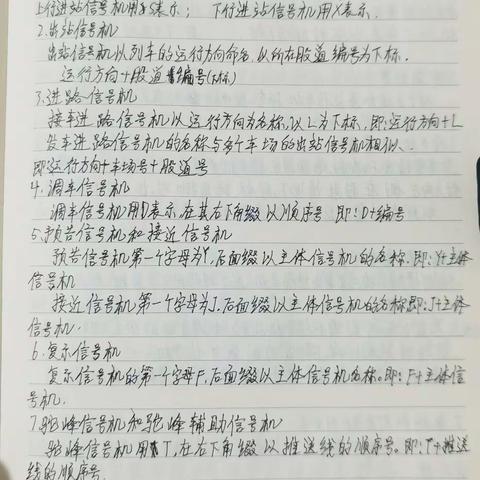 上行进站信号机用S表示； 下行进站信号机用X表示.
2.出站信号机
出站信号机以列车的运行方向命名,以所在股道编号为下标.
运行方向+股道编号(下标)
3.进路信号机
接车进路信号机以运行方向为名称,以L为下标.即:运行方向+L
发车进路信号机的名称与多个车场的出站信号机相似.
即运行方向+车场号+股道号
4.调车信号机
调车信号机用D表示,在其右下角缀以顺序号 即:D+编号
5.预告信号机和接近信号机
预告信号机第一个字母为Y,后面缀以主体信号机的名称.即:Y+主体
信号机
接近信号机第一个字母为J.后面缀以主体信号机的名称即:J+主体
信号机.
6.复示信号机
复示信号机的第一个字母F,后面缀以主体信号机名称。即:F+主体信
号机.
7.驼峰信号机和驼峰辅助信号机
驼峰信号机用T,在右下角缀以推送线的顺序号。即:T+推送
线的顺序号.